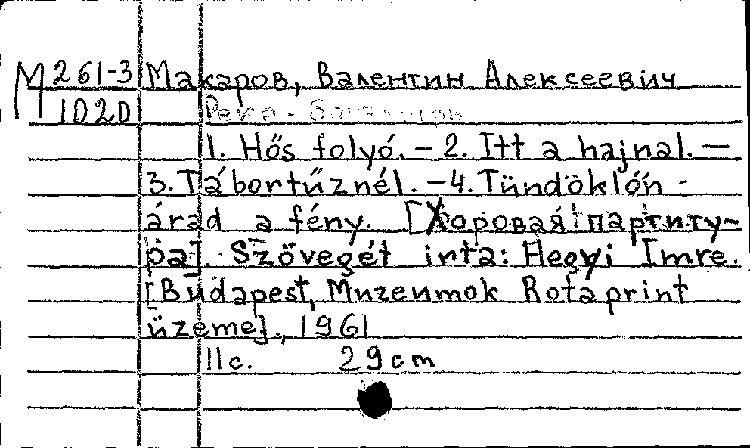 М 261-3 Макаров, Валентин Алексеевич
1020 Река - богатырь
1. Hős folyó. – 2. Itt a hajnal. –
3. Tábortűznél. – 4. Tündöklőn -
árad a fény. [Хоровая парти­ту-
ра]. Szövegét írta: Hegyi Imre.
[Budapest, Muzeumok Rotaprint
üzeme]., 1961
11 с. 29 cm